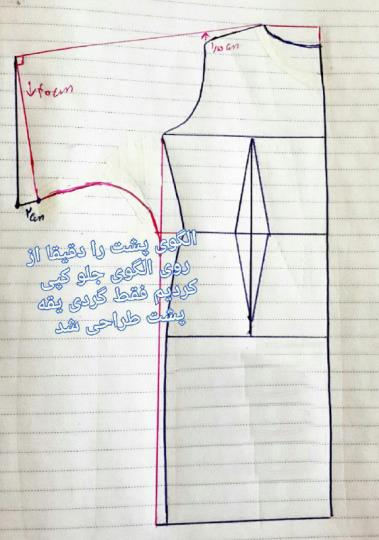 1/5 cm
↓ 20 cm
2 cm
الگوی پشت را دقیقا از
روی الگوی جلو کپی
کردیم فقط گردی یقه
پشت طراحی شد